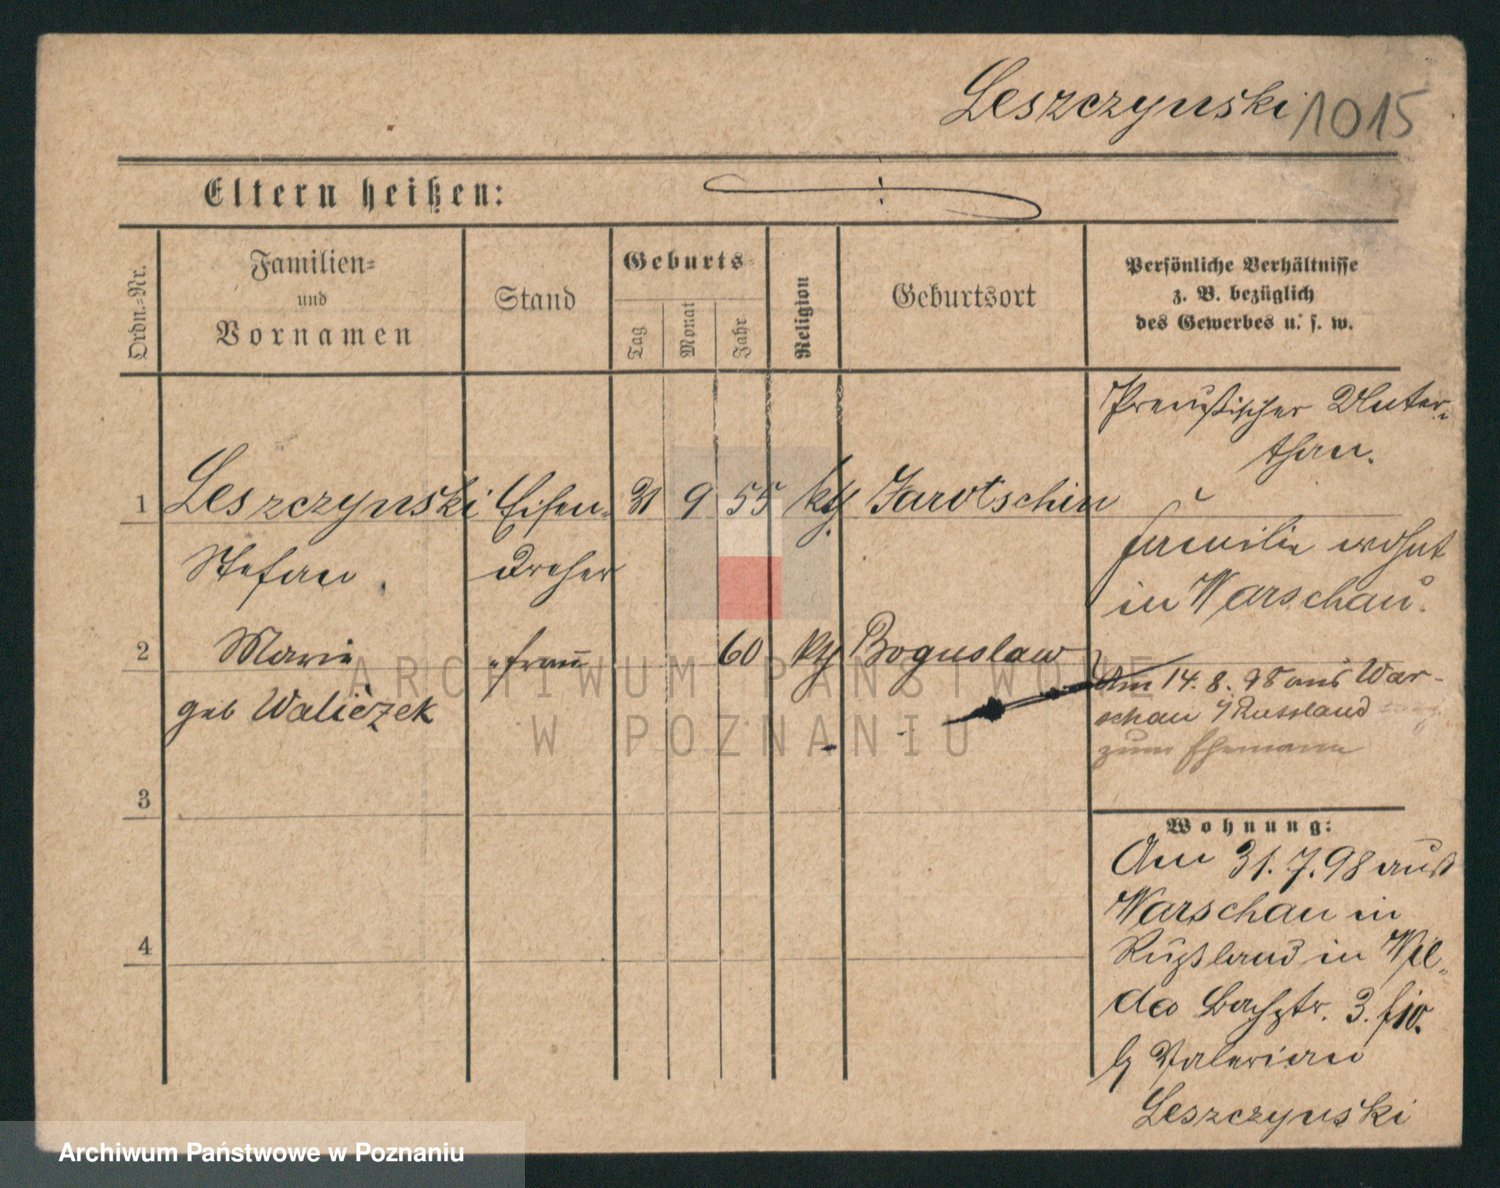 Leszczynski 1015
Eltern heißen:
Ordn.-Nr.
Familien-
und
Vornamen
Stand
Geburts-
Tag
Monat
Jahr
Religion
Geburtsort
Persönliche Verhältnisse
z. B. bezüglich
des Gewerbes u. s. w.
Preußischer Unter-
than.
1 Leszczynski Eisen- 31 9 55 kth Jarotschin
Familie wohnt
Stefan. dreher
in Warschau.
2 Marie frau 60 kth Boguslaw
Am 14. 8. 98 aus War-
geb Waliczek
schau / Russland
zum Ehemann
3
Wohnung:
Am 31. 7. 98 aus
Warschau in
4
Rußland in Wil-
da Bachstr. 3.
b Valerian
Leszczynski
ARCHIWUM PAŃSTWOWE
W POZNANIU
Archiwum Państwowe w Poznaniu